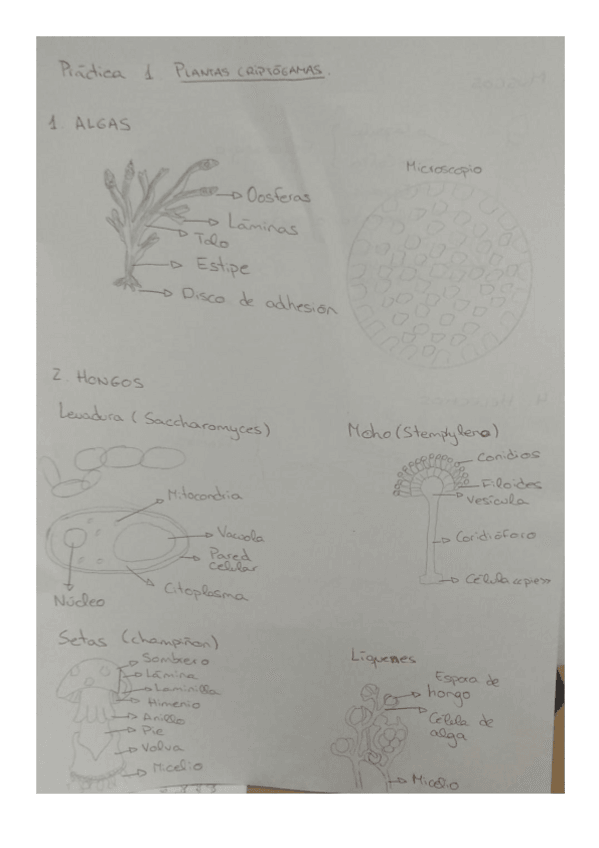 Práctica 1 PLANTAS CRIPTÓGAMAS.
1. ALGAS
Microscopio
Oosferas
Láminas
Talo
Estipe
Disco de adhesión
2. HONGOS
Levadura (Saccharomyces)
Mitocondria
Vacuola
Pared
celular
Citoplasma
Núcleo
Moho
Conidios
Filoides
Vesícula
Conidióforo
Célula
Setas (champiñon)
Sombrero
Lámina
Laminilla
Himenio
Anillo
Pie
Volva
Micelio
Líquenes
Espora de
hongo
Célula de
alga
Micelio